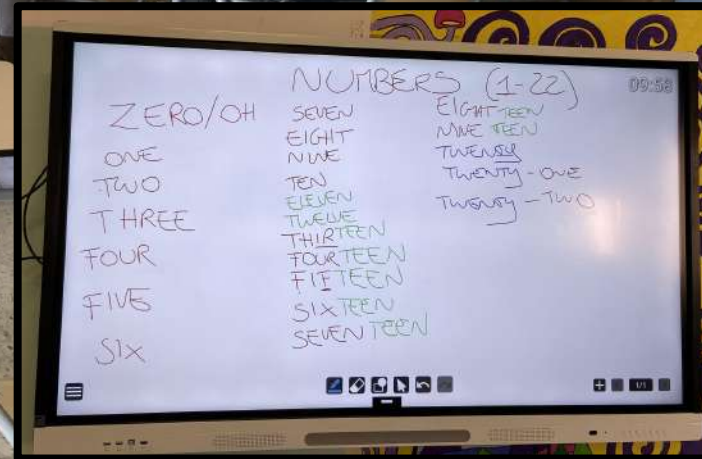 NUMBERS (1-22)
09:58
ZERO/OH
ONE
TWO
THREE
FOUR
FIVE
SIX
SEVEN
EIGHT
NINE
TEN
ELEVEN
TWELVE
THIRTEEN
FOURTEEN
FIFTEEN
SIXTEEN
SEVENTEEN
EIGHTEEN
NINETEEN
TWENTY
TWENTY-ONE
TWENTY-TWO
1/1